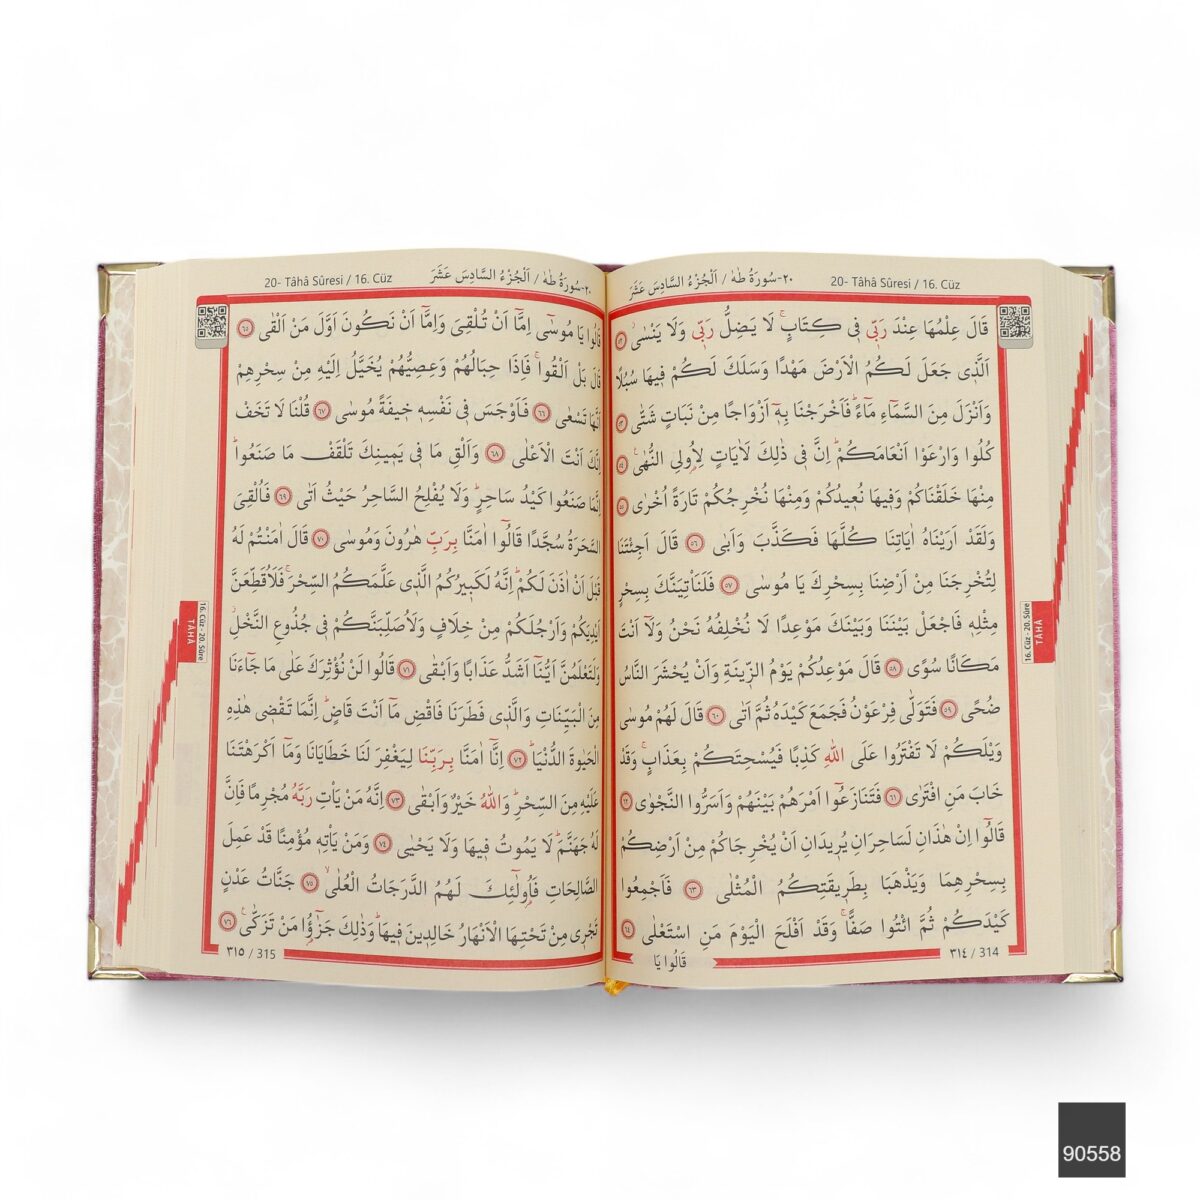 ٢٠-سُورَةُ طٰهٰ / اَلْجُزْءُ السَّادِسَ عَشَرَ
20- Tâhâ Sûresi / 16. Cüz
قَالَ عِلْمُهَا عِنْدَ رَبّ۪ي ف۪ي كِتَابٍۚ لَا يَضِلُّ رَبّ۪ي وَلَا يَنْسٰىۘ ﴿٥٢﴾
اَلَّذ۪ي جَعَلَ لَكُمُ الْاَرْضَ مَهْدًا وَسَلَكَ لَكُمْ ف۪يهَا سُبُلًا
وَاَنْزَلَ مِنَ السَّمَٓاءِ مَٓاءًۜ فَاَخْرَجْنَا بِه۪ٓ اَزْوَاجًا مِنْ نَبَاتٍ شَتّٰى ﴿٥٣﴾
كُلُوا وَارْعَوْا اَنْعَامَكُمْۜ اِنَّ ف۪ي ذٰلِكَ لَاٰيَاتٍ لِاُو۬لِي النُّهٰى۟ ﴿٥٤﴾
مِنْهَا خَلَقْنَاكُمْ وَف۪يهَا نُع۪يدُكُمْ وَمِنْهَا نُخْرِجُكُمْ تَارَةً اُخْرٰى ﴿٥٥﴾
وَلَقَدْ اَرَيْنَاهُ اٰيَاتِنَا كُلَّهَا فَكَذَّبَ وَاَبٰى ﴿٥٦﴾ قَالَ اَجِئْتَنَا
لِتُخْرِجَنَا مِنْ اَرْضِنَا بِسِحْرِكَ يَا مُوسٰى ﴿٥٧﴾ فَلَنَأْتِيَنَّكَ بِسِحْرٍ
مِثْلِه۪ فَاجْعَلْ بَيْنَنَا وَبَيْنَكَ مَوْعِدًا لَا نُخْلِفُهُ نَحْنُ وَلَٓا اَنْتَ
مَكَانًا سُوًى ﴿٥٨﴾ قَالَ مَوْعِدُكُمْ يَوْمُ الزّ۪ينَةِ وَاَنْ يُحْشَرَ النَّاسُ
ضُحًى ﴿٥٩﴾ فَتَوَلّٰى فِرْعَوْنُ فَجَمَعَ كَيْدَهُ ثُمَّ اَتٰى ﴿٦٠﴾ قَالَ لَهُمْ مُوسٰى
وَيْلَكُمْ لَا تَفْتَرُوا عَلَى اللّٰهِ كَذِبًا فَيُسْحِتَكُمْ بِعَذَابٍۚ وَقَدْ
خَابَ مَنِ افْتَرٰى ﴿٦١﴾ فَتَنَازَعُٓوا اَمْرَهُمْ بَيْنَهُمْ وَاَسَرُّوا النَّجْوٰى ﴿٦٢﴾
قَالُٓوا اِنْ هٰذَانِ لَسَاحِرَانِ يُر۪يدَانِ اَنْ يُخْرِجَاكُمْ مِنْ اَرْضِكُمْ
بِسِحْرِهِمَا وَيَذْهَبَا بِطَر۪يقَتِكُمُ الْمُثْلٰى ﴿٦٣﴾ فَاَجْمِعُوا
كَيْدَكُمْ ثُمَّ ائْتُوا صَفًّاۚ وَقَدْ اَفْلَحَ الْيَوْمَ مَنِ اسْتَعْلٰى ﴿٦٤﴾
٣١٤ / 314
قَالُوا يَا
16. Cüz - 20. Sûre
TÂHÂ
٢٠-سُورَةُ طٰهٰ / اَلْجُزْءُ السَّادِسَ عَشَرَ
20- Tâhâ Sûresi / 16. Cüz
قَالُوا يَا مُوسٰٓى اِمَّٓا اَنْ تُلْقِيَ وَاِمَّٓا اَنْ نَكُونَ اَوَّلَ مَنْ اَلْقٰى ﴿٦٥﴾
قَالَ بَلْ اَلْقُواۚ فَاِذَا حِبَالُهُمْ وَعِصِيُّهُمْ يُخَيَّلُ اِلَيْهِ مِنْ سِحْرِهِمْ
اَنَّهَا تَسْعٰى ﴿٦٦﴾ فَاَوْجَسَ ف۪ي نَفْسِه۪ خ۪يفَةً مُوسٰى ﴿٦٧﴾ قُلْنَا لَا تَخَفْ
اِنَّكَ اَنْتَ الْاَعْلٰى ﴿٦٨﴾ وَاَلْقِ مَا ف۪ي يَم۪ينِكَ تَلْقَفْ مَا صَنَعُواۜ
اِنَّمَا صَنَعُوا كَيْدُ سَاحِرٍۜ وَلَا يُفْلِحُ السَّاحِرُ حَيْثُ اَتٰى ﴿٦٩﴾ فَاُلْقِيَ
السَّحَرَةُ سُجَّدًا قَالُٓوا اٰمَنَّا بِرَبِّ هٰرُونَ وَمُوسٰى ﴿٧٠﴾ قَالَ اٰمَنْتُمْ لَهُ
قَبْلَ اَنْ اٰذَنَ لَكُمْۜ اِنَّهُ لَكَب۪يرُكُمُ الَّذ۪ي عَلَّمَكُمُ السِّحْرَۚ فَلَاُقَطِّعَنَّ
اَيْدِيَكُمْ وَاَرْجُلَكُمْ مِنْ خِلَافٍ وَلَاُصَلِّبَنَّكُمْ ف۪ي جُذُوعِ النَّخْلِۘ
وَلَتَعْلَمُنَّ اَيُّنَٓا اَشَدُّ عَذَابًا وَاَبْقٰى ﴿٧١﴾ قَالُوا لَنْ نُؤْثِرَكَ عَلٰى مَا جَٓاءَنَا
مِنَ الْبَيِّنَاتِ وَالَّذ۪ي فَطَرَنَا فَاقْضِ مَٓا اَنْتَ قَاضٍۜ اِنَّمَا تَقْض۪ي هٰذِهِ
الْحَيٰوةَ الدُّنْيَاۜ ﴿٧٢﴾ اِنَّٓا اٰمَنَّا بِرَبِّنَا لِيَغْفِرَ لَنَا خَطَايَانَا وَمَٓا اَكْرَهْتَنَا
عَلَيْهِ مِنَ السِّحْرِۜ وَاللّٰهُ خَيْرٌ وَاَبْقٰى ﴿٧٣﴾ اِنَّهُ مَنْ يَأْتِ رَبَّهُ مُجْرِمًا فَاِنَّ
لَهُ جَهَنَّمَۜ لَا يَمُوتُ ف۪يهَا وَلَا يَحْيٰى ﴿٧٤﴾ وَمَنْ يَأْتِه۪ مُؤْمِنًا قَدْ عَمِلَ
الصَّالِحَاتِ فَاُو۬لٰٓئِكَ لَهُمُ الدَّرَجَاتُ الْعُلٰىۙ ﴿٧٥﴾ جَنَّاتُ عَدْنٍ
تَجْر۪ي مِنْ تَحْتِهَا الْاَنْهَارُ خَالِد۪ينَ ف۪يهَاۜ وَذٰلِكَ جَزٰٓؤُا مَنْ تَزَكّٰى۟ ﴿٧٦﴾
٣١٥ / 315
16. Cüz - 20. Sûre
TÂHÂ
90558